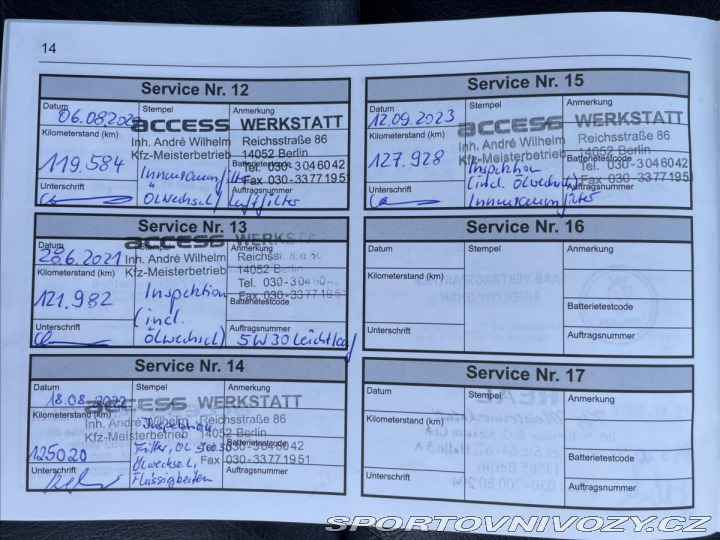 14
Service Nr. 12
Datum
Stempel
Anmerkung
06.08.2020
access WERKSTATT
Inh. André Wilhelm Reichsstraße 86
Kfz-Meisterbetrieb 14052 Berlin
Tel. 030-304 60 42
Fax 030-33 77 19 51
Kilometerstand (km)
Batterietestcode
119.584
Innenraumfilter
Ölwechsel, Luftfilter
Unterschrift
Auftragsnummer
Service Nr. 13
Datum
Stempel
26.6.2021
access WERKSTATT
Inh. André Wilhelm Reichsstraße 86
Kfz-Meisterbetrieb 14052 Berlin
Tel. 030-304 60 42
Fax 030-33 77 19 51
Kilometerstand (km)
Batterietestcode
121.982
Inspektion
(incl.
Ölwechsel) 5W30 Leichtlauf
Unterschrift
Auftragsnummer
Service Nr. 14
Datum
Stempel
Anmerkung
18.08.2022
access WERKSTATT
Inh. André Wilhelm Reichsstraße 86
Kfz-Meisterbetrieb 14052 Berlin
Tel. 030-304 60 42
Fax 030-33 77 19 51
Kilometerstand (km)
Batterietestcode
125020
Inspektion
Filter, Öl 5W30
Ölwechsel,
Flüssigkeiten
Unterschrift
Auftragsnummer
Service Nr. 15
Datum
Stempel
Anmerkung
12.09.2023
access WERKSTATT
Inh. André Wilhelm Reichsstraße 86
Kfz-Meisterbetrieb 14052 Berlin
Tel. 030-304 60 42
Fax 030-33 77 19 51
Kilometerstand (km)
Batterietestcode
127.928
Inspektion
(incl. Ölwechsel)
Innenraumfilter
Unterschrift
Auftragsnummer
Service Nr. 16
Datum
Stempel
Anmerkung
Kilometerstand (km)
Batterietestcode
Unterschrift
Auftragsnummer
Service Nr. 17
Datum
Stempel
Anmerkung
Kilometerstand (km)
Batterietestcode
Unterschrift
Auftragsnummer
SPORTOVNIVOZY.CZ